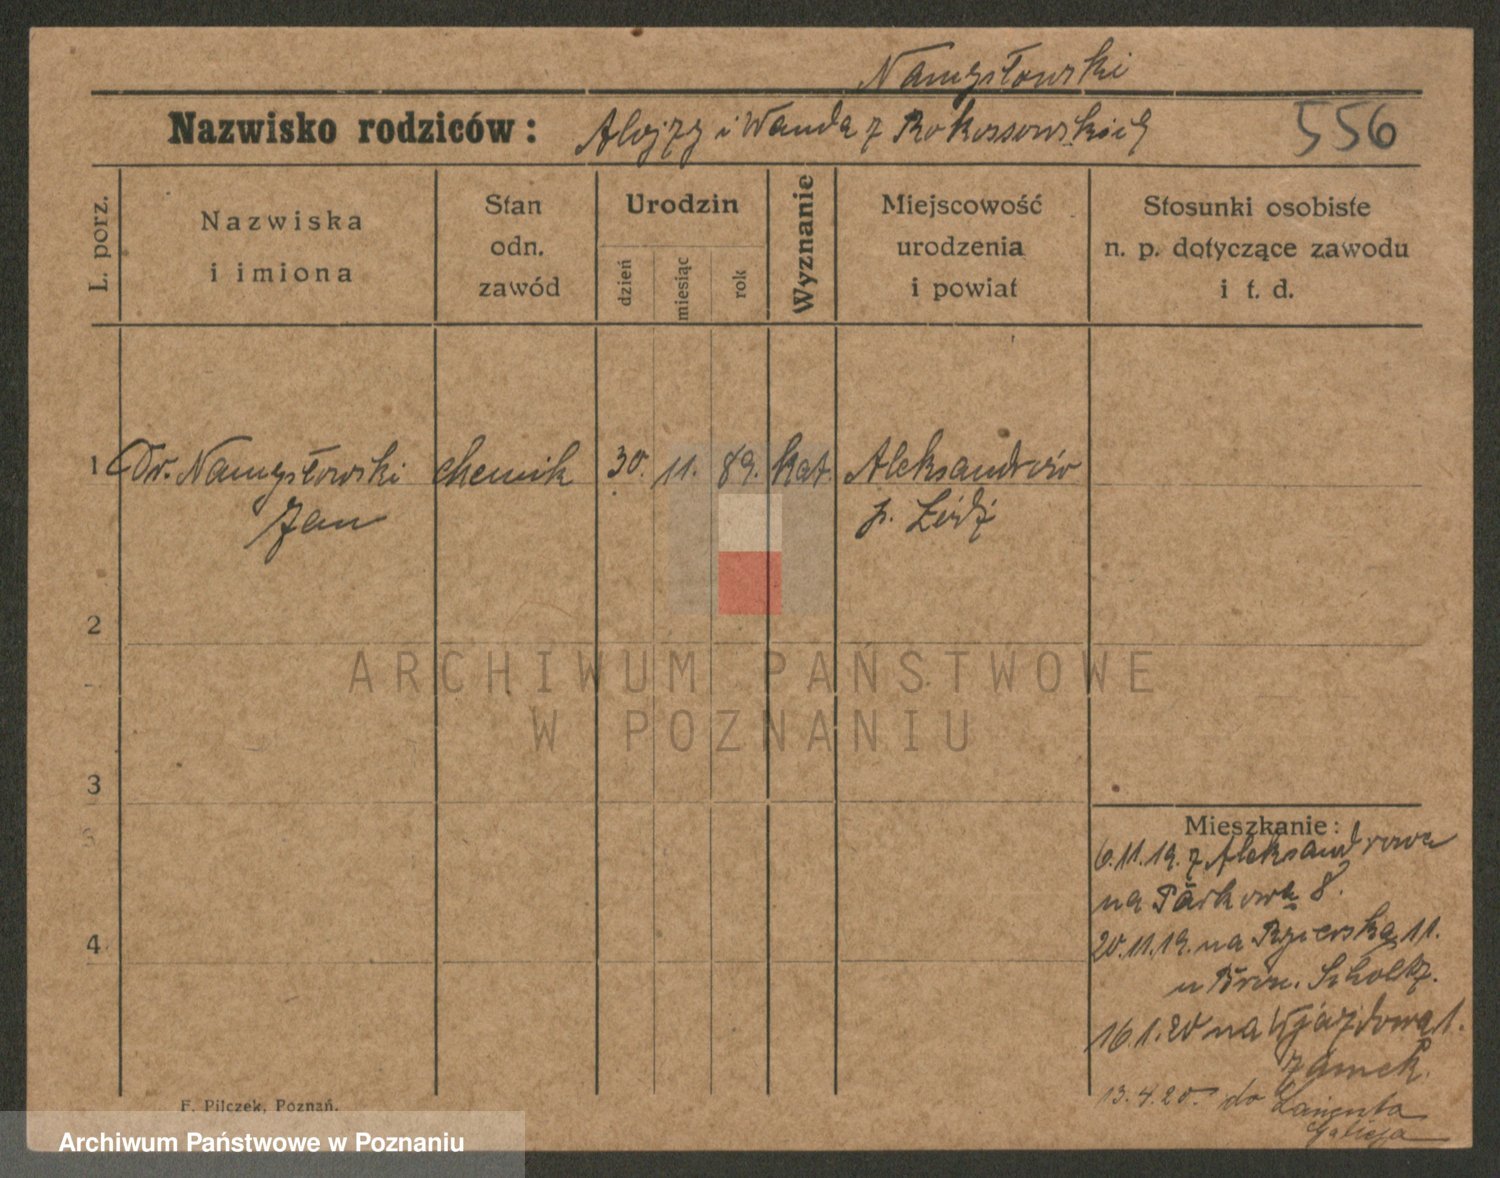 Namysłowski
Nazwisko rodziców: Alojzy i Wanda z Rokossowskich 556
L. porz.
Nazwiska
i imiona
Stan
odn.
zawód
Urodzin
dzień
miesiąc
rok
Wyznanie
Miejscowość
urodzenia
i powiat
Stosunki osobiste
n. p. dotyczące zawodu
i t. d.
1 Dr. Namysłowski chemik 30. 11. 89. kat. Aleksandrów
Jan p. Łódź
2
3
4
Mieszkanie:
6.11.19. z Aleksandrowa
na Parkową 8.
20.11.19. na 11.
u
16.1.20 na Wjazdową 1.
zamek.
13.4.20. do Łańcuta
Galicja
F. Pilczek, Poznań.
ARCHIWUM PAŃSTWOWE
W POZNANIU
Archiwum Państwowe w Poznaniu